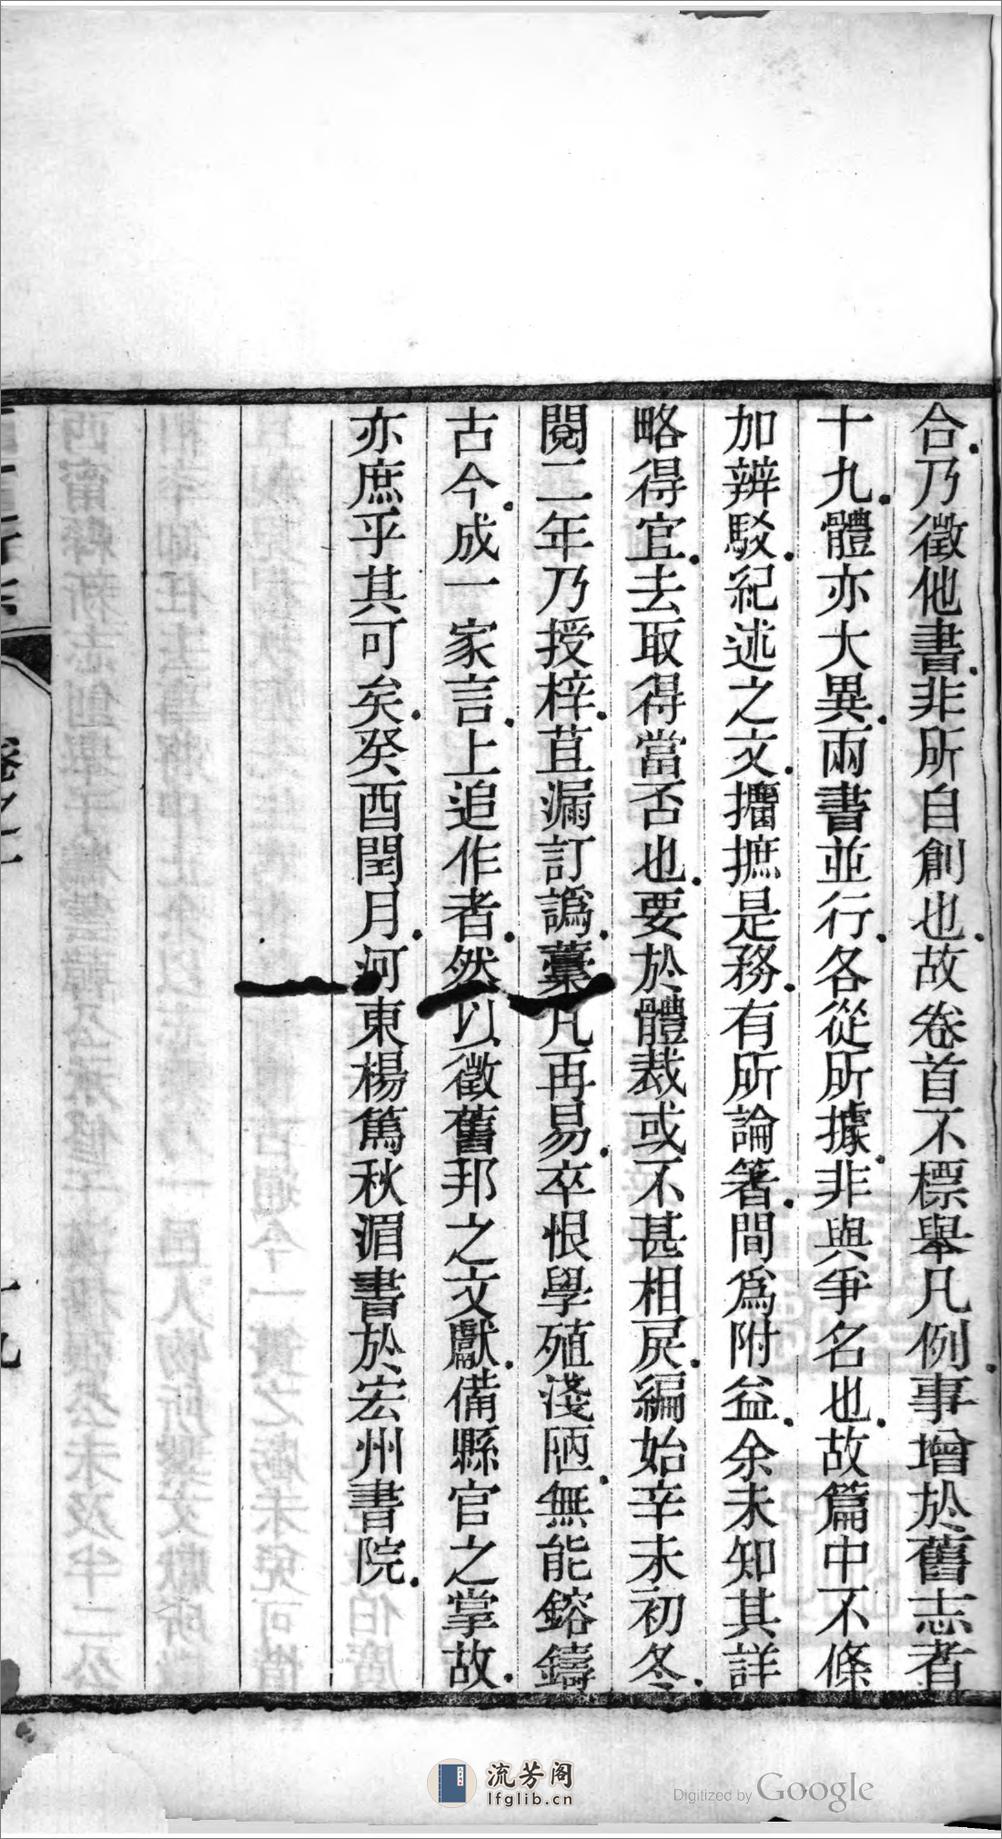 合乃徵他書非所自創也故卷首不標舉凡例事增於舊志者
十九體亦大異兩書並行各從所據非與爭名也故篇中不條
加辨駁紀述之文攟摭是務有所論箸間爲附益余未知其詳
略得宜去取得當否也要於體裁或不甚相戾編始辛未初冬
閱二年乃授梓苴漏訂譌藳凡再易卒恨學殖淺陋無能鎔鑄
古今成一家言上追作者然以徵舊邦之文獻備縣官之掌故
亦庶乎其可矣癸酉閏月河東楊篤秋湄書於宏州書院
流芳阁
lfglib.cn
Digitized by Google